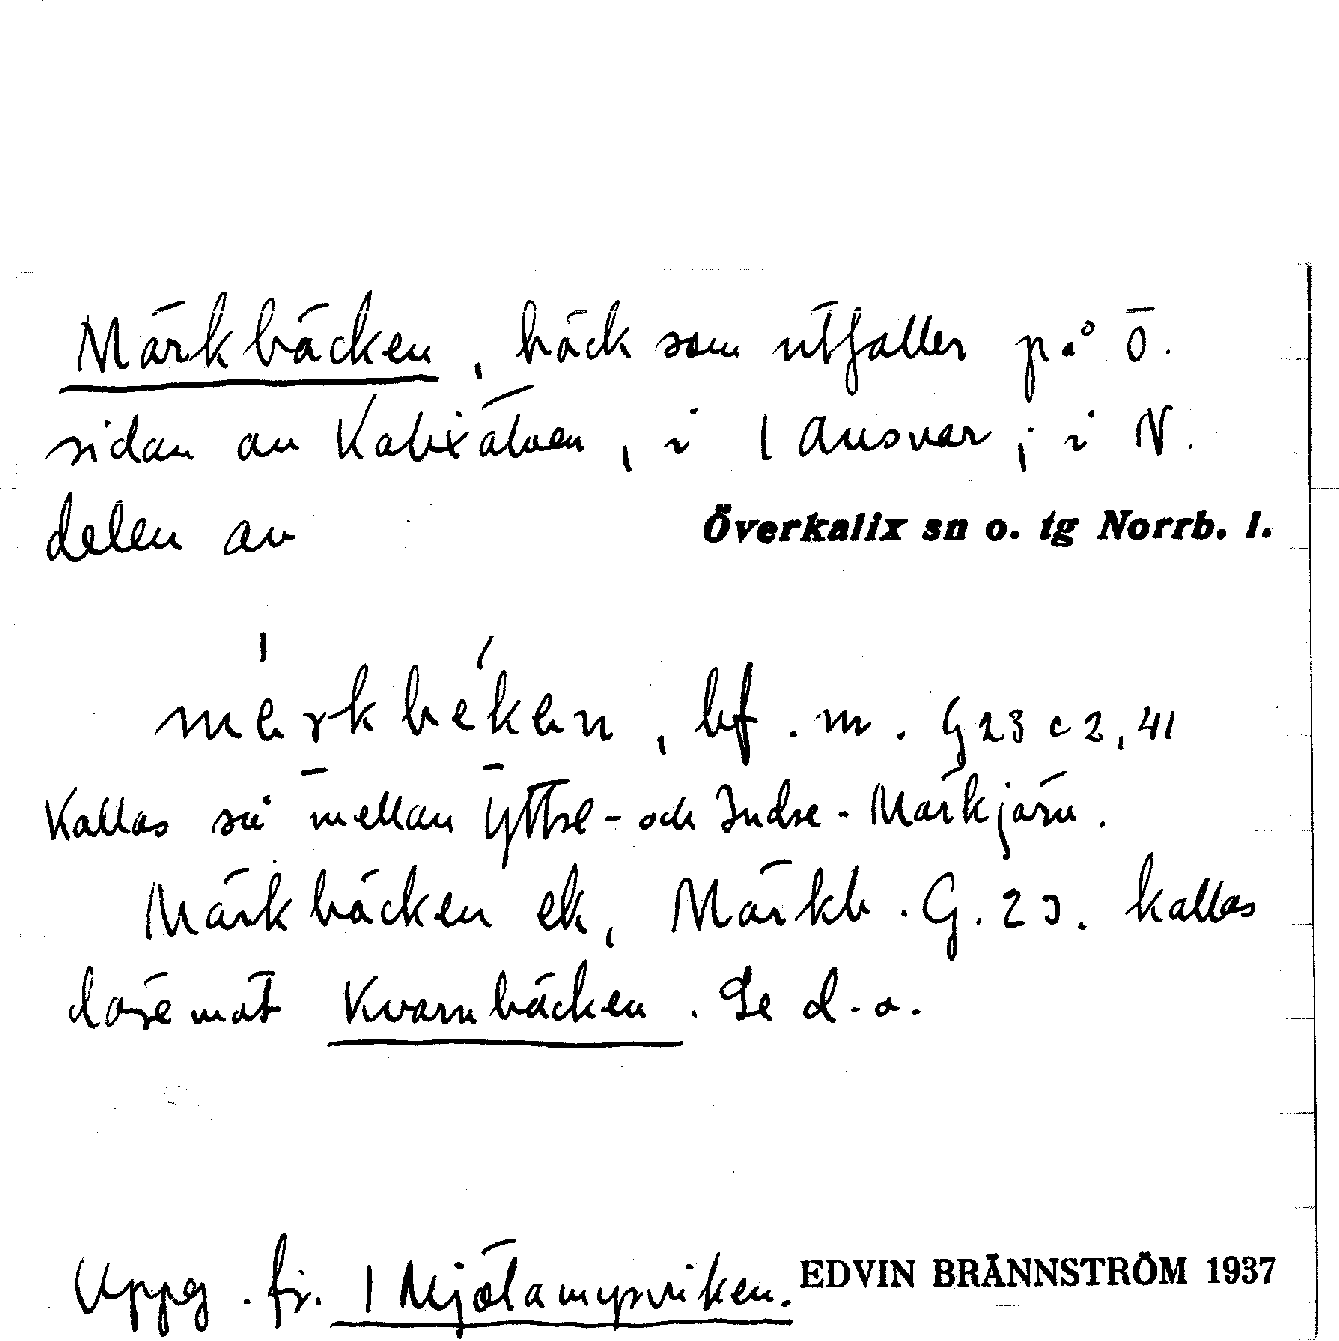 Märkbäcken, bäck som utfaller på ö.
sidan av Kalixälven, i 1 Ansvar, i N.
delen av Överkalix sn o. tg Norrb. l.
bf. m. G 23 c 2, 41
Kallas så mellan Yttre- och Indre-Märkjärn.
Märkbäcken ek, Märkb. G. 23. kallas
däremot Kvarnbäcken. Se d.o.
Uppg. fr. 1 Mjölamyrviken. EDVIN BRÄNNSTRÖM 1937